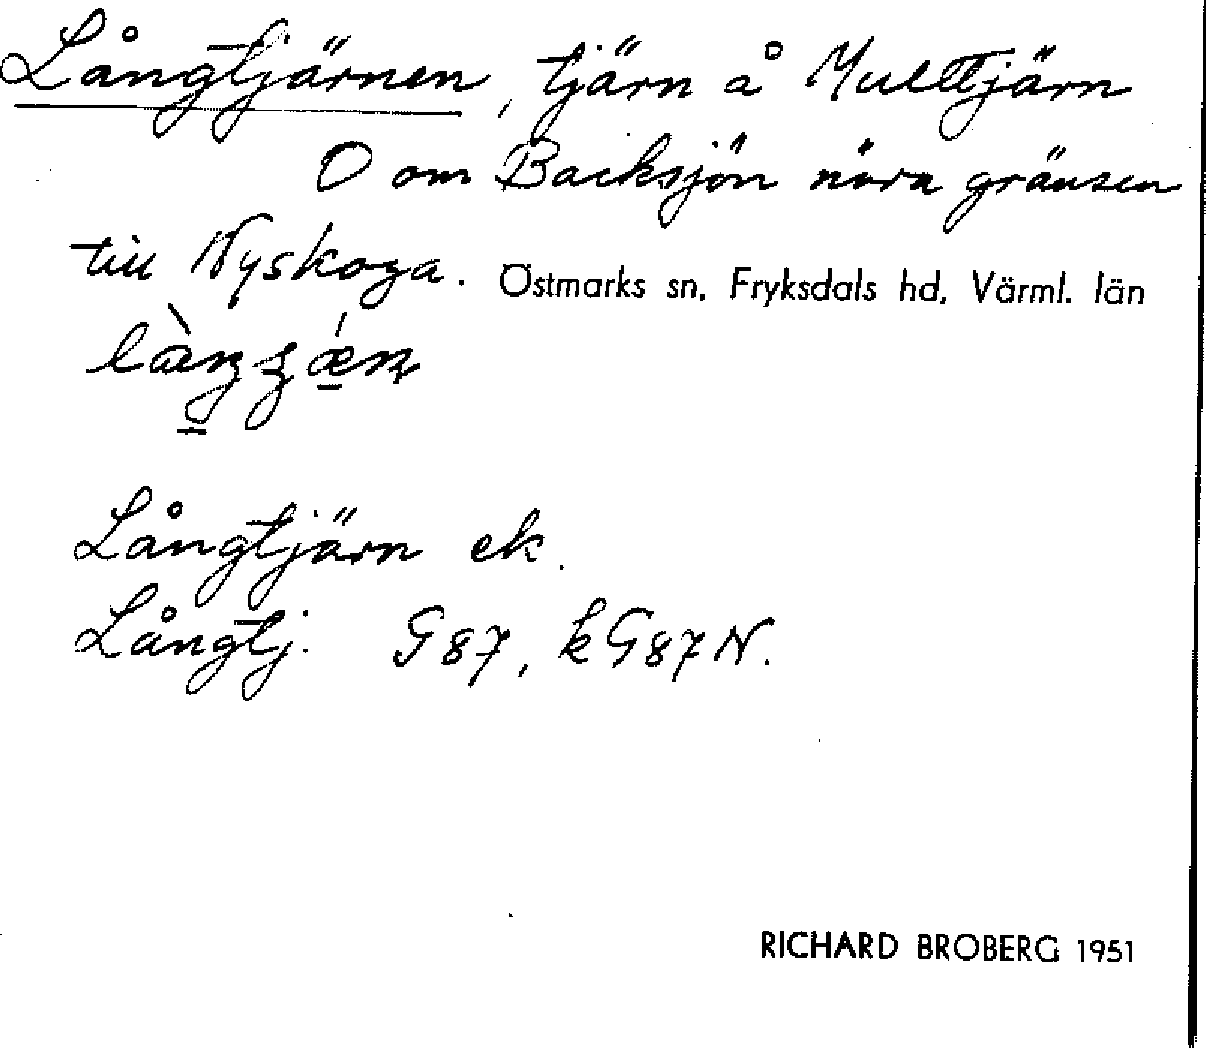 Långtjärnen, tjärn å Mulltjärn
O om Backsjön nära gränsen
till Nyskoga. Östmarks sn, Fryksdals hd, Värml. län
Långtjärn ek.
Långtj. G87, kG87N.
RICHARD BROBERG 1951